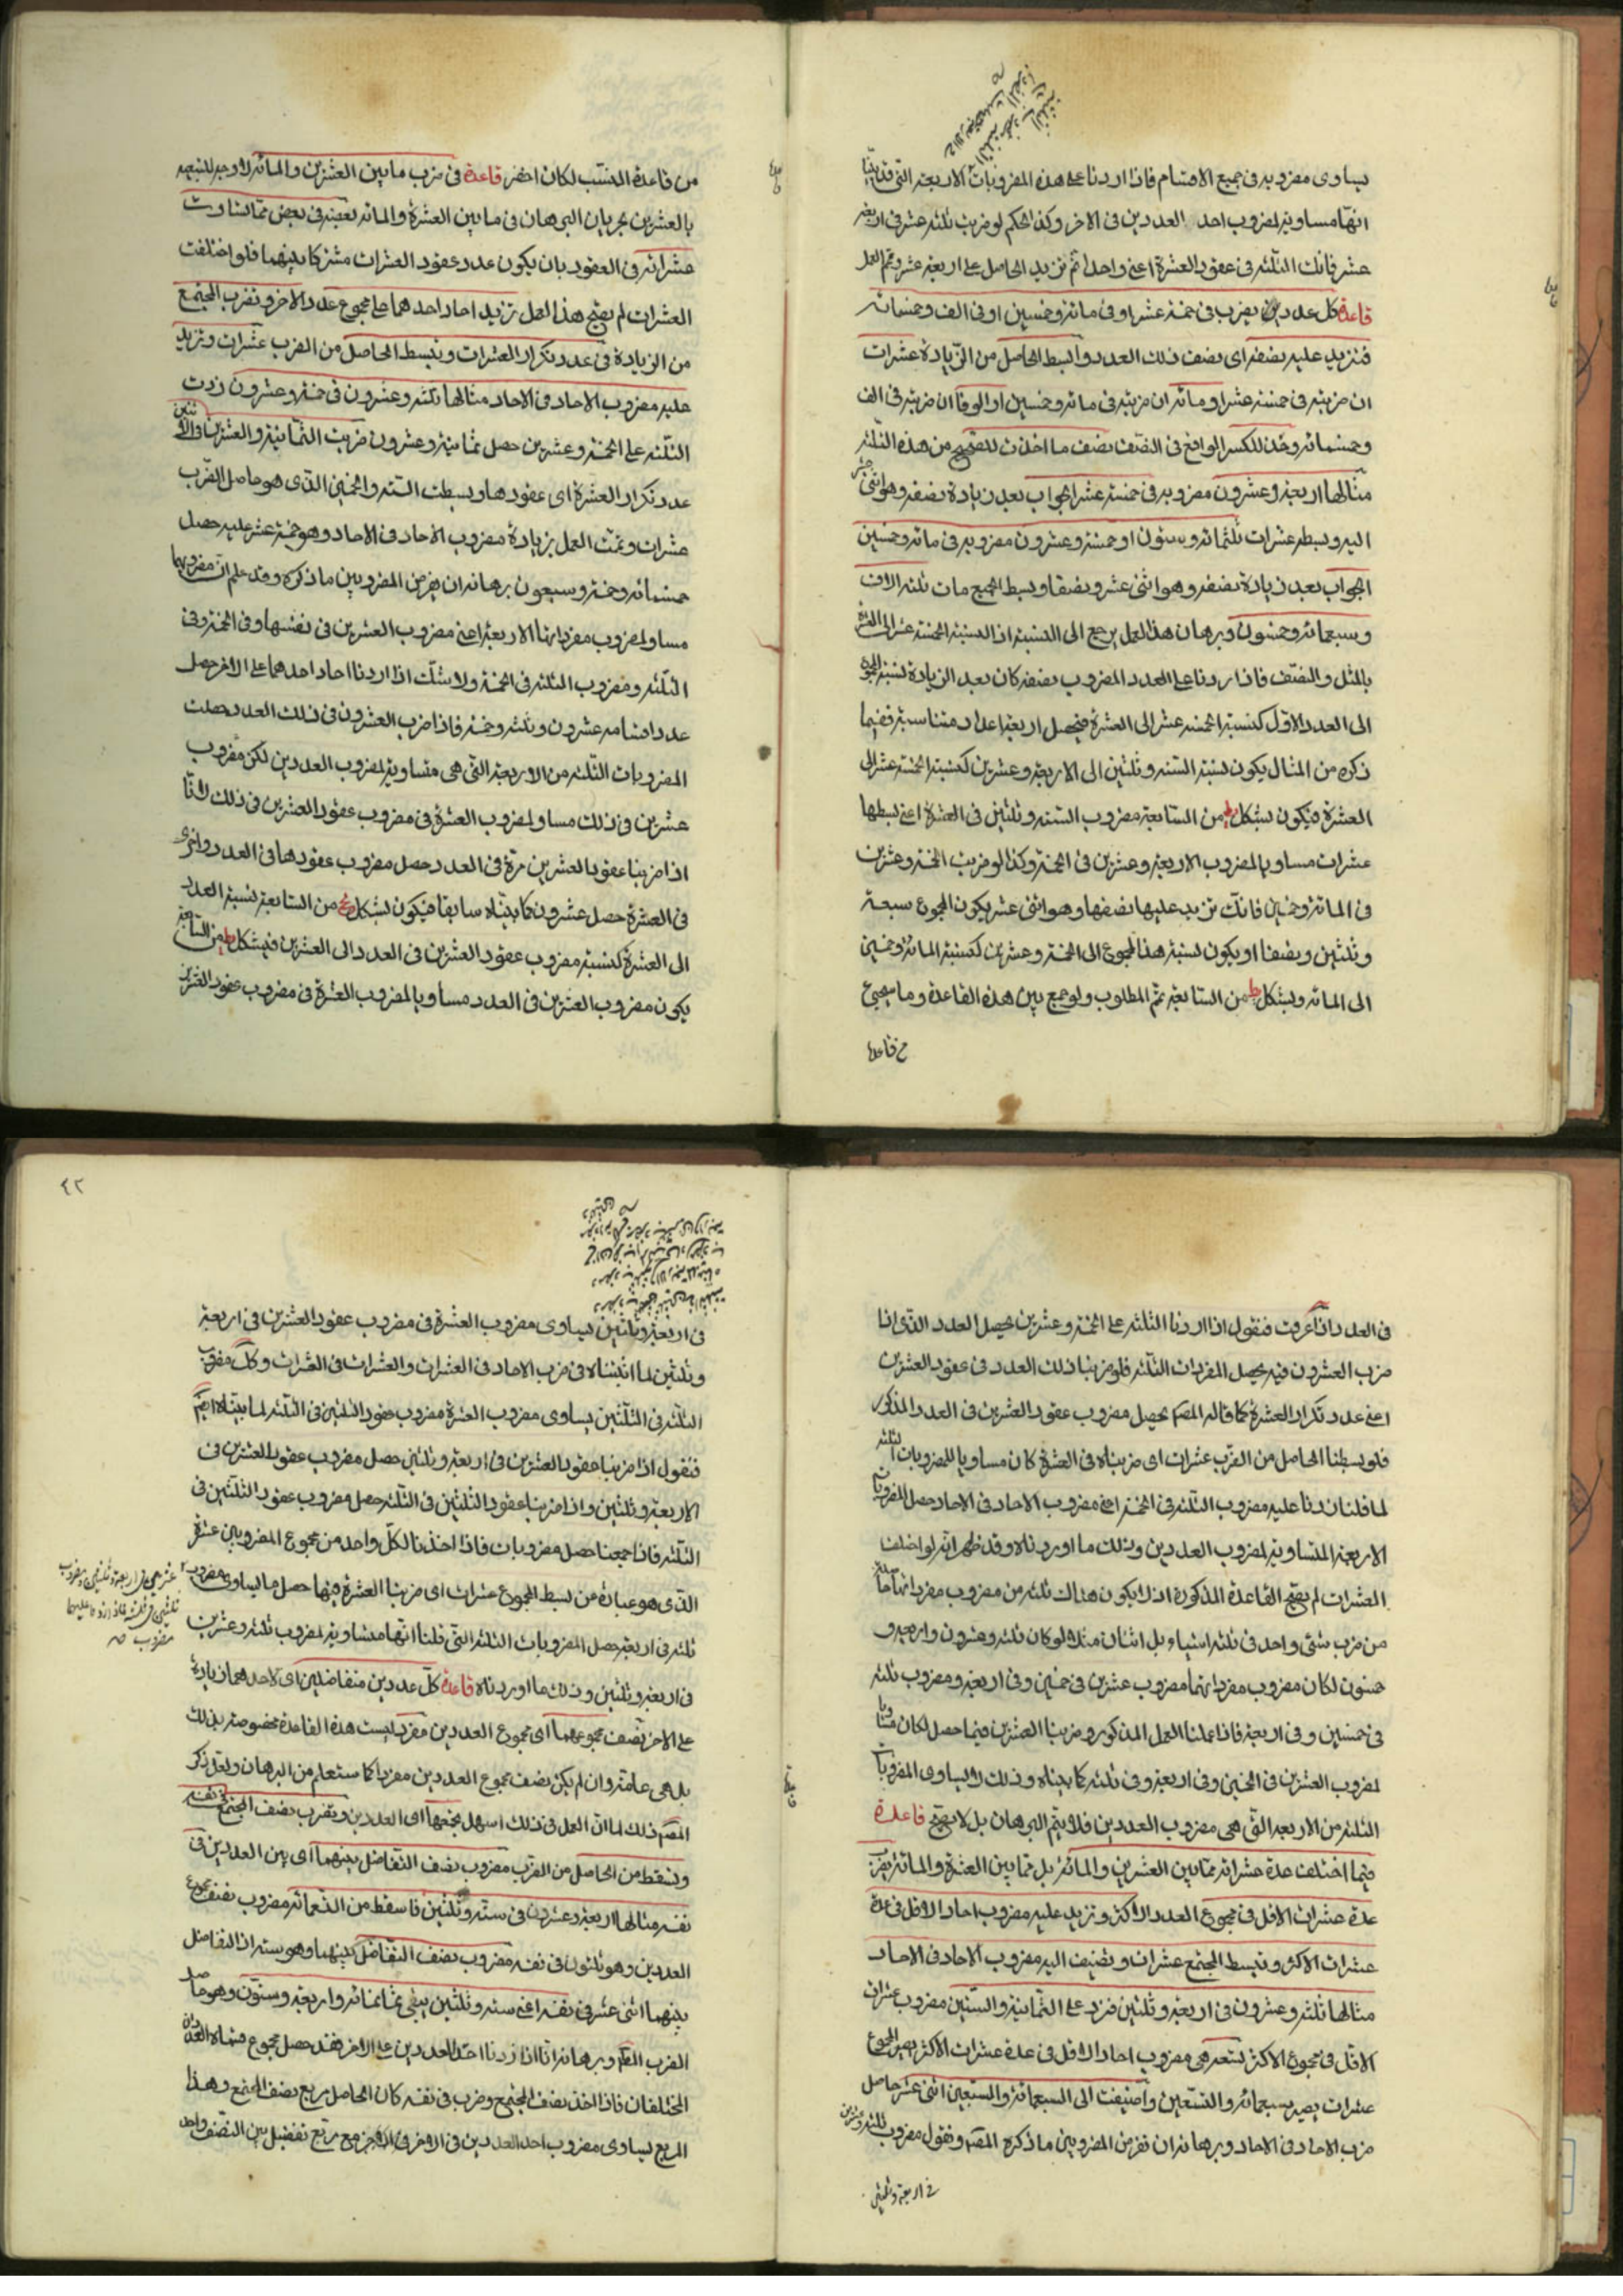 يساوى مضروبه فى جميع الاقسام فاذا اردنا على هذه المضروبات الاربعة التى قد بيّنا
انها مساوية لمضروب احد العددين فى الاخر وكذا الحكم لو ضرب ثلثة عشر فى اربعة
عشر فانك الثلثة فى عقود العشرة اعنى واحدا ثم تزيد الحاصل على اربعة عشر وتمم العمل
قاعدة كل عدد يضرب فى خمسة عشر او فى مائة وخمسين او فى الف وخمسمائة
فتزيد عليه نصفه اى نصف ذلك العدد وابسط الحاصل من الزيادة عشرات
ان ضربته فى خمسة عشر او مائة ان ضربته فى مائة وخمسين او الوفا ان ضربته فى الف
وخمسمائة وخذ للكسر الواقع فى النصف نصف ما اخذت للصحيح من هذه الثلثة
مثالها اربعة وعشرون مضروبه فى خمسة عشر الجواب بعد زيادة نصفه وهو اثنى عشر
اليه وبسطه عشرات ثلثمائة وستون او خمسة وعشرون مضروبه فى مائة وخمسين
الجواب بعد زيادة نصفه وهو اثنى عشر ونصفا وبسط الجميع مات ثلثة الاف
وسبعمائة وخمسون وبرهان هذا العمل يرجع الى النسبة اذ النسبة الخمسة عشر الى العشرة
بالمثل والنصف فاذا زدنا على العدد المضروب نصفه كان بعد الزيادة نسبة المجموع
الى العدد الاول كنسبة الخمسة عشر الى العشرة فيحصل اربعة اعداد متناسبة ففيما
ذكره من المثال يكون نسبة الستة وثلثين الى الاربعة وعشرين كنسبة الخمسة عشر الى
العشرة فيكون بشكل يط من السابعة مضروب الستة وثلثين فى العشرة اعنى بسطها
عشرات مساويا لمضروب الاربعة وعشرين فى الخمسة وكذا لو ضرب الخمسة وعشرين
فى المائة وخمسين فانك تزيد عليها نصفها وهو اثنى عشر يكون المجموع سبعة
وثلثين ونصفا او يكون نسبة هذا المجموع الى الخمسة وعشرين كنسبة المائة وخمسين
الى المائة وبشكل يط من السابعة يتم المطلوب ولو جمع بين هذه القاعدة وما سيجئ
من قاعدة
من قاعدة النسب لكان اخصر قاعدة فى ضرب مابين العشرين والمائة لا وجه للتبعيد
بالعشرين بجريان البرهان فى مابين العشرة والمائة بعضه فى بعض مما تساوت
عشراته فى العقود بان يكون عدد عقود العشرات مشتركا بينهما فلو اختلفت
العشرات لم يصح هذا العمل تزيد احاد احدهما على مجموع عدد الاخر وتضرب المجتمع
من الزيادة فى عدد تكرار العشرات وتبسط الحاصل من الضرب عشرات وتزيد
عليه مضروب الاحاد فى الاحاد مثالها ثلثة وعشرون فى خمسة وعشرون زدت
الثلثة على الخمسة وعشرين حصل ثمانية وعشرون ضربت الثمانية والعشرين فى الاثنين
عدد تكرار العشرة اى عقودها وبسطت الستة والخمسين الذى هو حاصل الضرب
عشرات وتممت العمل بزيادة مضروب الاحاد فى الاحاد وهو خمسة عشر عليه حصل
خمسمائة وخمسة وسبعون برهانه ان يفرض المضروبين ما ذكره وقد علم ان مضروبهما
مساو لمضروب مفرداتها الاربعة اعنى مضروب العشرين فى نفسها وفى الخمسة وفى
الثلثة ومضروب الثلثة فى الخمسة ولا شك اذا اردنا احاد احدهما على الاخر حصل
عددا قسامه عشرون وثلثة وخمسة فاذا ضرب العشرون فى ذلك العدد حصلت
المضروبات الثلثة من الاربعة التى هى متساوية لمضروب العددين لكن مضروب
عشرين فى ذلك مساو لمضروب العشرة فى مضروب عقود العشرين فى ذلك لانا
اذا ضربنا عقود العشرين مرة فى العدد حصل مضروب عقودها فى العدد واخرى
فى العشرة حصل عشرون كما بيناه سابقا فيكون بشكل من السابعة نسبة العدد
الى العشرة كنسبة مضروب عقود العشرين فى العدد الى العشرين فبشكل يط من السابعة
يكون مضروب العشرين فى العدد مساويا لمضروب العشرة فى مضروب عقود العشرين
فى العدد اذا عرفت فنقول اذا اردنا الثلثة على الخمسة وعشرين يحصل العدد الذى اذا
ضرب العشرون فيه يحصل المفردات الثلثة فلو ضربنا ذلك العدد فى عقود العشرين
اعنى عدد تكرار العشرة كما قاله المصم يحصل مضروب عقود العشرين فى العدد المذكور
فلو بسطنا الحاصل من الضرب عشرات اى ضربناه فى العشرة كان مساويا للمضروبات الثلثة
لما قلنا زدنا عليه مضروب الثلثة فى الخمسة اعنى مضروب الاحاد فى الاحاد حصل المضروبات
الاربعة المتساوية لمضروب العددين وذلك ما اوردناه وقد ظهر انه لو اختلف
العشرات لم يصح القاعدة المذكورة اذ لا يكون هناك ثلثة من مضروب مفرداتها حاصلة
من ضرب شئ واحد فى ثلثة اشياء بل اثنان مثلا لو كان ثلثة وعشرون واربعة و
خمسون لكان مضروب مفرداتهما مضروب عشرين فى خمسين وفى اربعة ومضروب ثلثة
فى خمسين وفى اربعة فاذا عملنا العمل المذكور وضربنا العشرين فيما حصل لكان مساويا
لمضروب العشرين فى الخمسين وفى اربعة وفى ثلثة كما بيناه وذلك لا يساوى المضروبات
الثلثة من الاربعة التى هى مضروب العددين فلا يتم البرهان بل لا يصح قاعدة
فيما اختلف عدة عشراته مما بين العشرين والمائة بل مما بين العشرة والمائة يضرب
عدة عشرات الاقل فى مجموع العدد الاكثر وتزيد عليه مضروب احاد الاقل فى عدة
عشرات الاكثر وتبسط المجتمع عشرات وتضيف اليه مضروب الاحاد فى الاحاد
مثالها ثلثة وعشرون فى اربعة وثلثين فزد على الثمانية والستين مضروب عشرات
الاقل فى مجموع الاكثر تسعة هى مضروب احاد الاقل فى عدة عشرات الاكثر يصير المجموع
عشرات يصير سبعمائة والسبعين واضيفت الى السبعمائة والسبعين اثنى عشر حاصل
ضرب الاحاد فى الاحاد وبرهانه ان نفرض المضروبين ما ذكره المصم ونقول مضروب ثلثة وعشرين
فى اربعة وثلثين
٤٢
فى اربعة وثلثين يساوى مضروب العشرة فى مضروب عقود العشرين فى اربعة
وثلثين لما اثبتناه فى ضرب الاحاد فى العشرات والعشرات فى العشرات وكل مضروب
الثلثة فى الثلثين يساوى مضروب العشرة مضروب عقود الثلثين فى الثلثة لما بيناه ايضا
فنقول اذا ضربنا عقود العشرين فى اربعة وثلثين حصل مضروب عقود العشرين فى
الاربعة وثلثين واذا ضربنا عقود الثلثين فى الثلثة حصل مضروب عقود الثلثين فى
الثلثة فاذا جمعنا حصل مضروبات فاذا اخذنا لكل واحد من مجموع المضروبين عشرة
الذى هو عبارة عن بسط المجموع عشرات اى ضربنا العشرة فيها حصل ما يساوى مضروب
عشرين فى اربعة وثلثين ومضروب
ثلثين فى ثلثة فاذا زدنا عليهما
مضروب صم
ثلثة فى اربعة حصل المضروبات الثلثة التى قلنا انها متساوية لمضروب ثلثة وعشرين
فى اربعة وثلثين وذلك ما اوردناه قاعدة كل عددين متفاضلين اى لاحدهما زيادة
على الاخر نصف مجموعهما اى مجموع العددين مفرد ليست هذه القاعدة مخصوصة بذلك
بل هى عامة وان لم يكن نصف مجموع العددين مفردا كما ستعلم من البرهان ولعل ذكر
المصم ذلك لما ان العمل فى ذلك اسهل تجمعهما اى العددين وتضرب نصف المجتمع فى نفسه
وتسقط من الحاصل من الضرب مضروب نصف التفاضل بينهما اى بين العددين فى
نفسه مثالها اربعة وعشرون فى ستة وثلثين فاسقط من التسعمائة مضروب نصف مجموع
العددين وهو ثلثون فى نفسه مضروب نصف التفاضل بينهما وهو ستة اذ التفاضل
بينهما اثنى عشر فى نفسه اعنى ستة وثلثين يبقى ثمانمائة واربعة وستون وهو حاصل
الضرب المط وبرهانه انا اذا زدنا احد العددين على الاخر فقد حصل مجموع قسماه العددان
المختلفان فاذا اخذ نصف المجتمع وضرب فى نفسه كان الحاصل مربع نصف المجتمع وهذا
المربع يساوى مضروب احد العددين فى الاخر مع مربع تفضيل بين النصف واحد